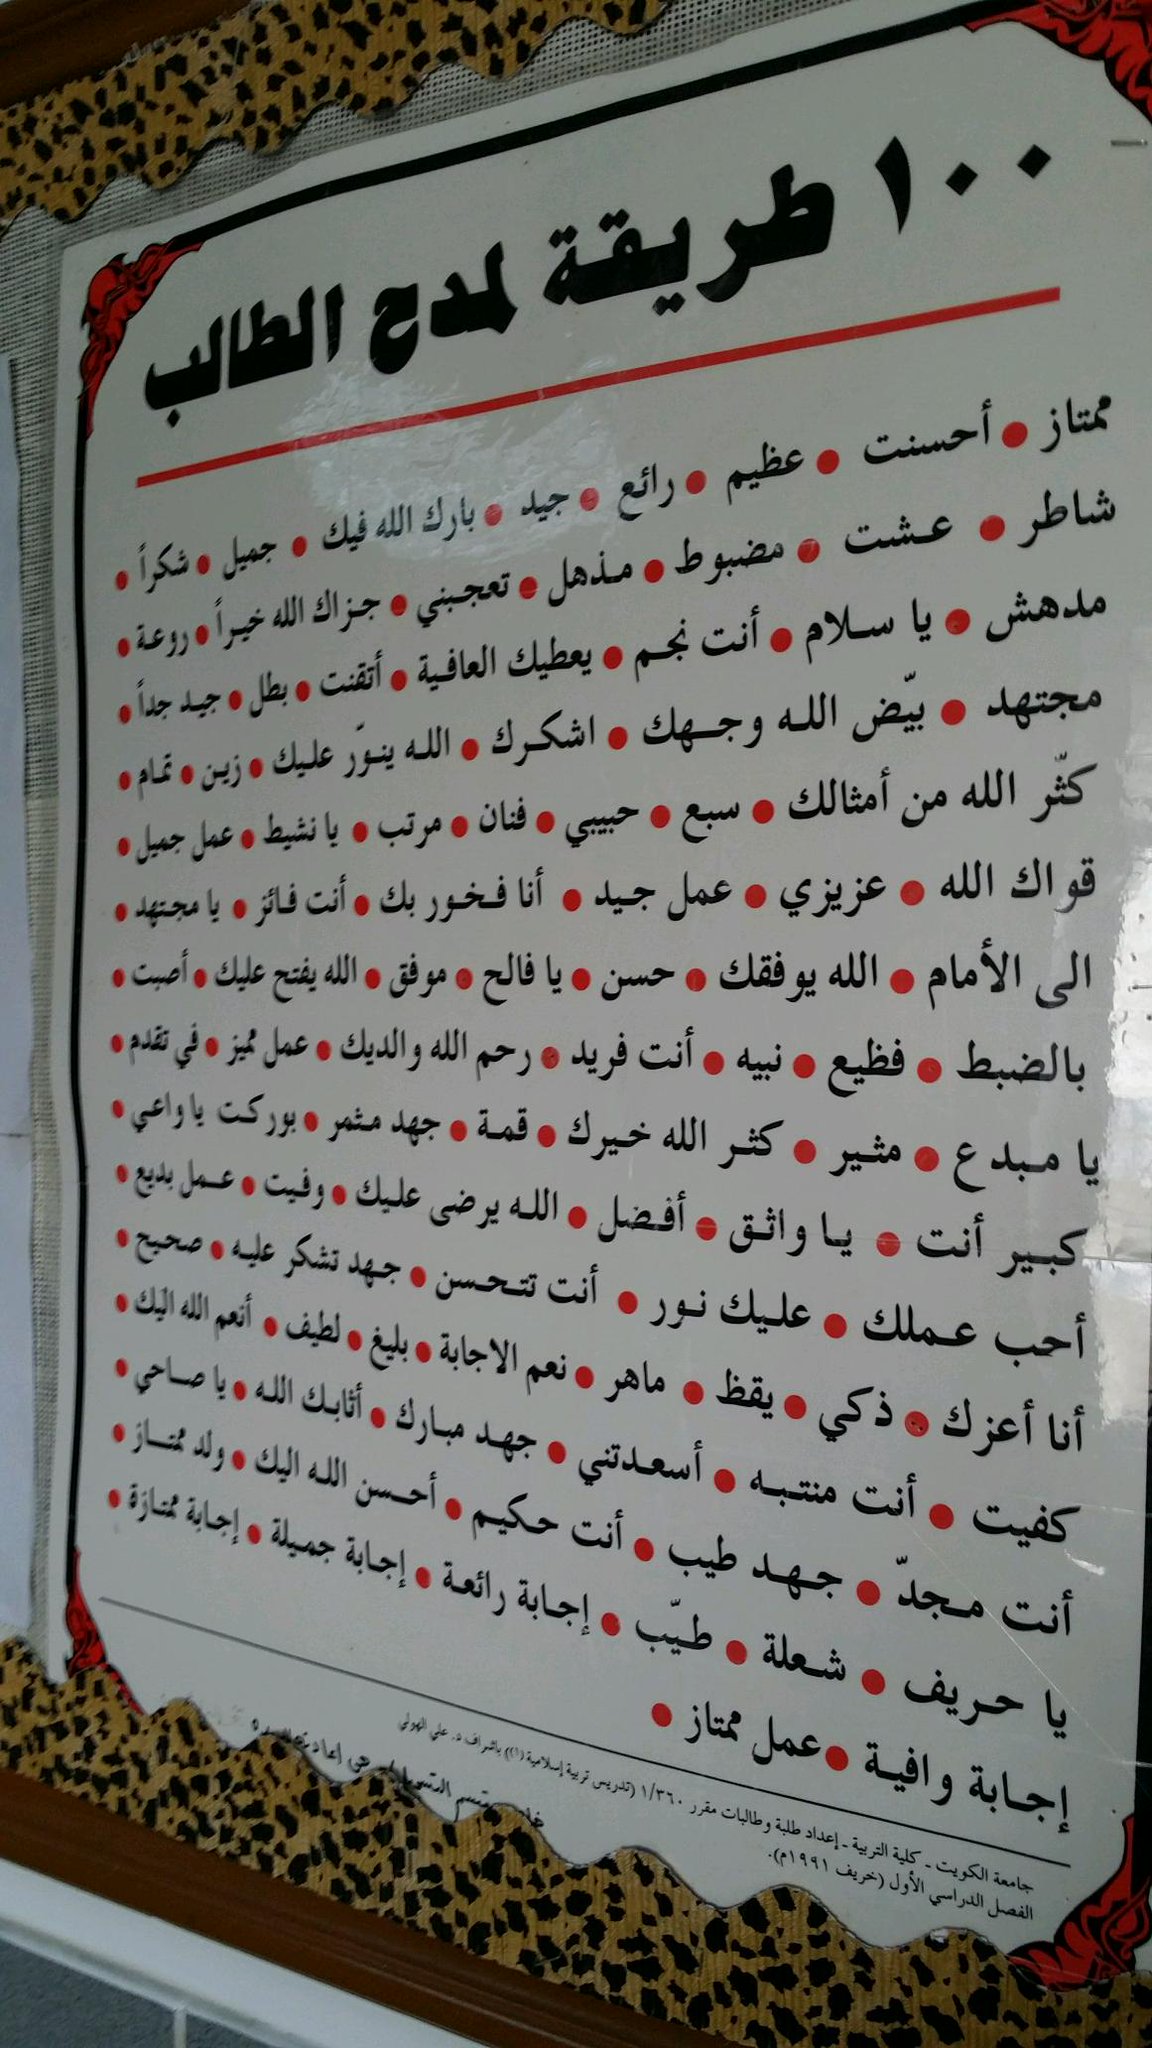 ١٠٠ طريقة لمدح الطالب
ممتاز • أحسنت • عظيم • رائع • جيد • بارك الله فيك • جميل • شكراً •
شاطر • عشت • مضبوط • مذهل • تعجبني • جزاك الله خيراً • روعة •
مدهش • يا سلام • أنت نجم • يعطيك العافية • أتقنت • بطل • جيد جداً •
مجتهد • بيّض الله وجهك • اشكرك • الله ينوّر عليك • زين • تمام •
كثّر الله من أمثالك • سبع • حبيبي • فنان • مرتب • يا نشيط • عمل جميل •
قواك الله • عزيزي • عمل جيد • أنا فخور بك • أنت فائز • يا مجتهد •
الى الأمام • الله يوفقك • حسن • يا فالح • موفق • الله يفتح عليك • أصبت •
بالضبط • فظيع • نبيه • أنت فريد • رحم الله والديك • عمل مميز • في تقدم •
يا مبدع • مثير • كثر الله خيرك • قمة • جهد مثمر • بوركت يا واعي •
كبير أنت • يا واثق • أفضل • الله يرضى عليك • وفيت • عمل بديع •
أحب عملك • عليك نور • أنت تتحسن • جهد تشكر عليه • صحيح •
أنا أعزك • ذكي • يقظ • ماهر • نعم الاجابة • بليغ • لطيف • أنعم الله اليك •
كفيت • أنت منتبه • أسعدتني • جهد مبارك • أثابك الله • يا صاحي •
أنت مجدّ • جهد طيب • أنت حكيم • أحسن الله اليك • ولد ممتاز •
يا حريف • شعلة • طيّب • إجابة رائعة • إجابة جميلة • إجابة ممتازة •
إجابة وافية • عمل ممتاز •
جامعة الكويت - كلية التربية - إعداد طلبة وطالبات مقرر ١/٣٦٠ (تدريس تربية إسلامية (١)) باشراف د. علي الهولي
الفصل الدراسي الأول (خريف ١٩٩١م).